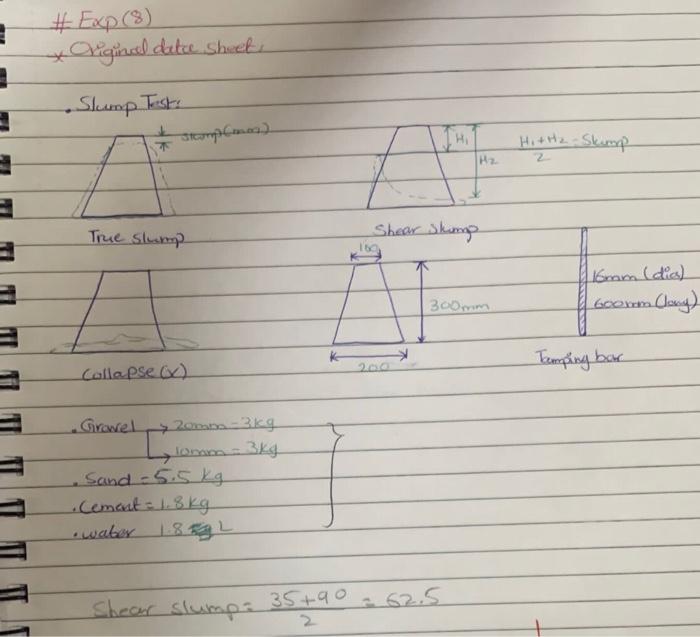 # Exp(8)
* Original data sheet.
• Slump Test:
slump(mm)
H1
H2
H1+H2 = Slump
2
True slump
Shear slump
100
300mm
200
16mm (dia)
600mm (long)
Collapse (x)
Tamping bar
• Gravel → 20mm - 3kg
→ 10mm = 3kg
• Sand = 5.5 kg
• Cement = 1.8kg
• water 1.8 L
Shear slump = 35+90 = 62.5
2